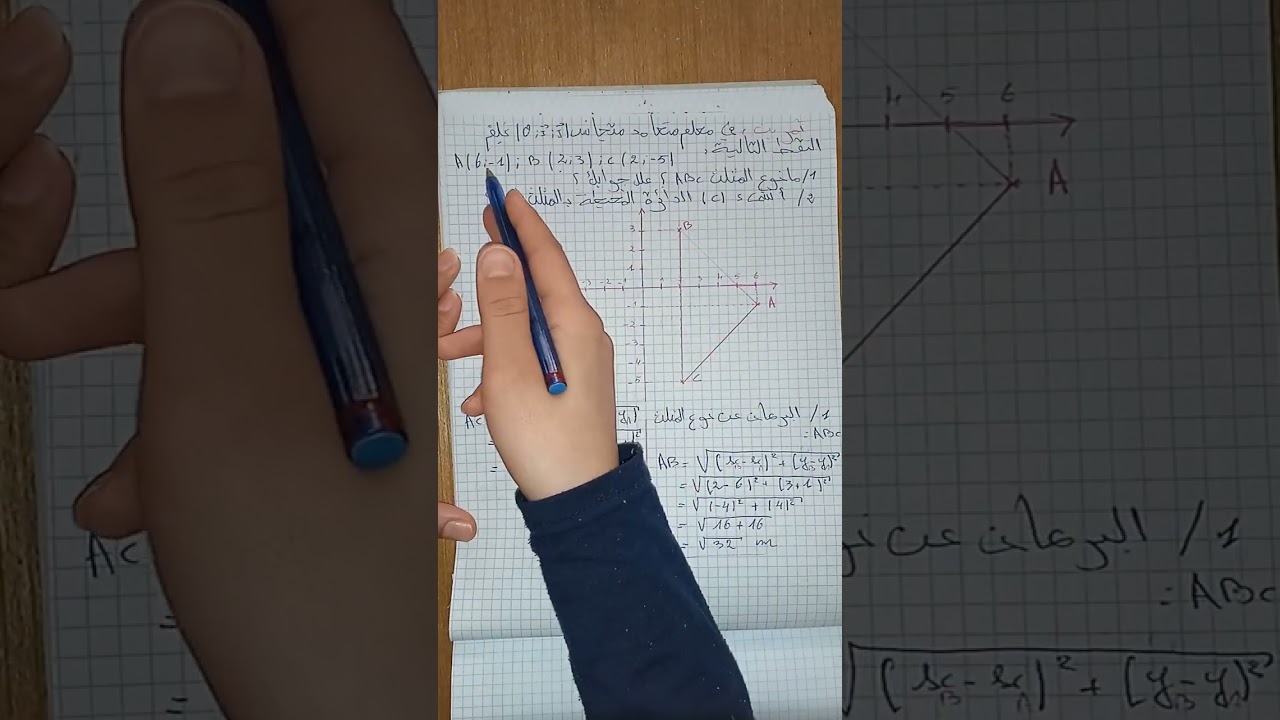 في معلم متعامد متجانس علم
النقط التالية:
A(6;-1); B(2;3); C(2;-5)
1/ ما نوع المثلث ABC ؟ علل جوابك ؟
2/ (C) الدائرة المحيطة بالمثلث
3
2
1
-3 -2 -1 1 3 4 5 6
-1
-2
-3
-4
-5
B
A
C
1/ البرهان عن نوع المثلث
ABC:
AC
AB = √(x_B - x_A)² + (y_B - y_A)²
= √(2-6)² + (3+1)²
= √(-4)² + (4)²
= √16 + 16
= √32
4 5 6
A
AC
=
=
1/ البرهان عن
ABC:
√(x_B - x_A)² + (y_B - y_A)²